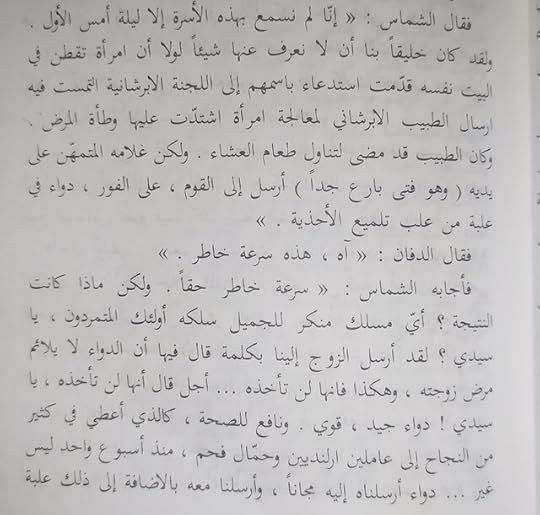 فقال الشماس : « إنّا لم نسمع بهذه الأسرة إلا ليلة أمس الأول .
ولقد كان خليقاً بنا أن لا نعرف عنها شيئاً لولا أن امرأة تقطن في
البيت نفسه قدّمت استدعاء باسمهم إلى اللجنة الابرشانية التمست فيه
ارسال الطبيب الابرشاني لمعالجة امرأة اشتدّت عليها وطأة المرض .
وكان الطبيب قد مضى لتناول طعام العشاء . ولكن غلامه المتمهّن على
يديه ( وهو فتى بارع جداً ) أرسل إلى القوم ، على الفور ، دواء في
علبة من علب تلميع الأحذية . »
فقال الدفان : « آه ، هذه سرعة خاطر . »
فأجابه الشماس : « سرعة خاطر حقاً . ولكن ماذا كانت
النتيجة ؟ أيّ مسلك منكر للجميل سلكه أولئك المتمردون ، يا
سيدي ؟ لقد أرسل الزوج إلينا بكلمة قال فيها أن الدواء لا يلائم
مرض زوجته ، وهكذا فانها لن تأخذه ... أجل قال أنها لن تأخذه ، يا
سيدي ! دواء جيد ، قوي . ونافع للصحة ، كالذي أعطي في كثير
من النجاح إلى عاملين ارلنديين وحمّال فحم ، منذ أسبوع واحد ليس
غير ... دواء أرسلناه إليه مجاناً ، وأرسلنا معه بالاضافة إلى ذلك علبة